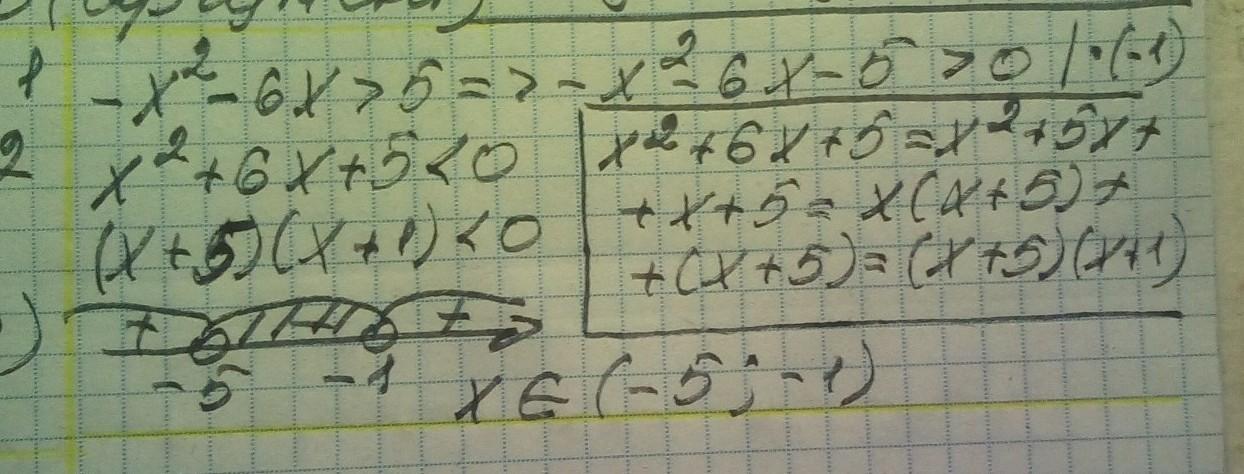 1 -x²-6x>5=>-x²-6x-5>0 |·(-1)
2 x²+6x+5<0
(x+5)(x+1)<0
x²+6x+5=x²+5x+
+x+5=x(x+5)+
+(x+5)=(x+5)(x+1)
+ - +
-5 -1 x∈(-5;-1)